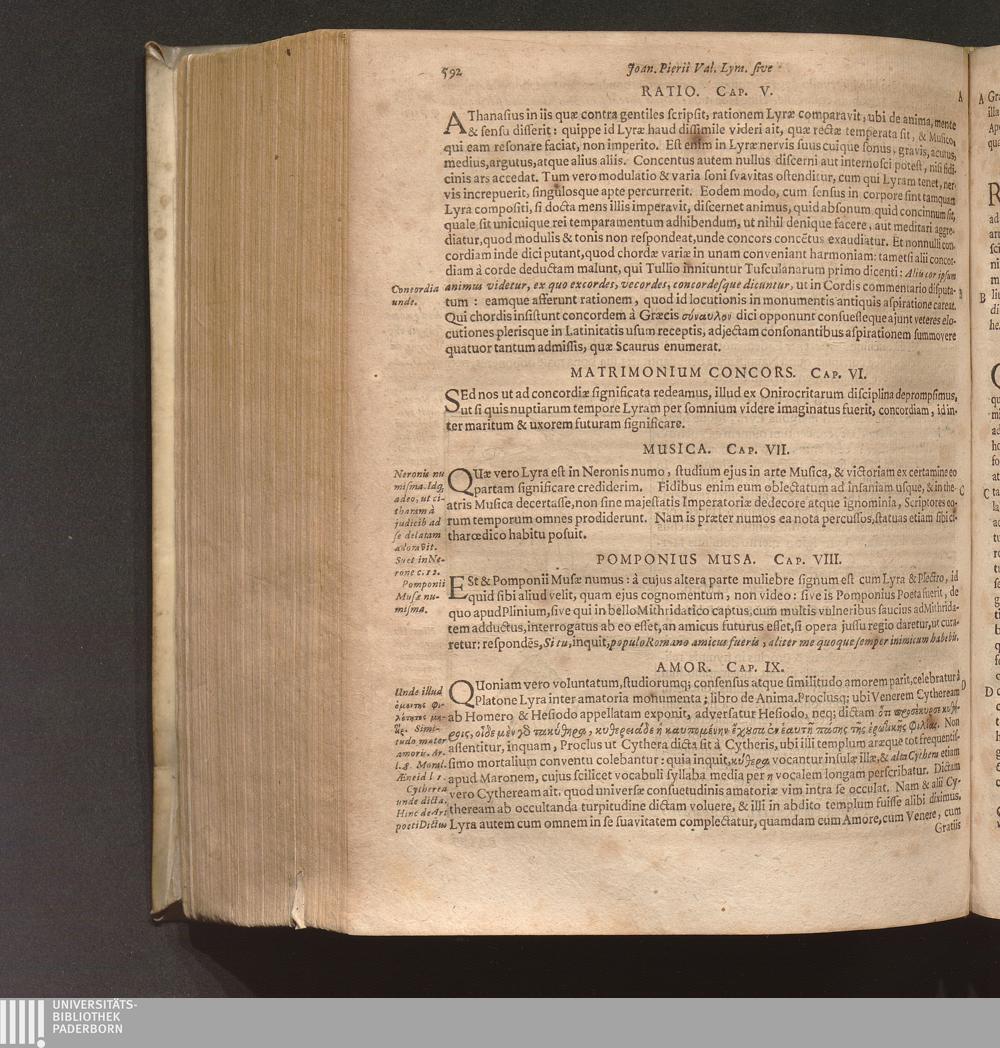 592
Joan. Pierii Val. Lym. sive
RATIO. CAP. V.
AThanasius in iis quæ contra gentiles scripsit, rationem Lyræ comparavit, ubi de anima, mente
& sensu disserit: quippe id Lyræ haud dissimile videri ait, quæ rectæ temperata sit, & Musico,
qui eam resonare faciat, non imperito. Est enim in Lyræ nervis suus cuique sonus, gravis, acutus,
medius, argutus, atque alius aliis. Concentus autem nullus discerni aut internosci potest, nisi fidi-
cinis ars accedat. Tum vero modulatio & varia soni svavitas ostenditur, cum qui Lyram tenet, ner-
vis increpuerit, singulosque apte percurrerit. Eodem modo, cum sensus in corpore sint tamquam
Lyra compositi, si docta mens illis imperavit, discernet animus, quid absonum quid concinnum sit,
quale sit unicuique rei temparamentum adhibendum, ut nihil denique facere, aut meditari aggre-
diatur, quod modulis & tonis non respondeat, unde concors concẽtus exaudiatur. Et nonnulli con-
cordiam inde dici putant, quod chordæ variæ in unam conveniant harmoniam: tametsi alii concor-
diam à corde deductam malunt, qui Tullio innituntur Tusculanarum primo dicenti: Aliis cor ipsum
animus videtur, ex quo excordes, vecordes, concordesque dicuntur, ut in Cordis commentario disputa-
Concordia
unde.
tum: eamque afferunt rationem, quod id locutionis in monumentis antiquis aspiratione careat.
Qui chordis insistunt concordem à Græcis σύναυλον dici opponunt consuesseque ajunt veteres elo-
cutiones plerisque in Latinitatis usum receptis, adjectam consonantibus aspirationem summovere
quatuor tantum admissis, quæ Scaurus enumerat.
MATRIMONIUM CONCORS. CAP. VI.
SEd nos ut ad concordiæ significata redeamus, illud ex Onirocritarum disciplina deprompsimus,
ut si quis nuptiarum tempore Lyram per somnium videre imaginatus fuerit, concordiam, id in-
ter maritum & uxorem futuram significare.
MUSICA. CAP. VII.
QUæ vero Lyra est in Neronis numo, studium ejus in arte Musica, & victoriam ex certamine eo
partam significare crediderim. Fidibus enim eum oblectatum ad insaniam usque, & in the-
atris Musica decertasse, non sine majestatis Imperatoriæ dedecore atque ignominia, Scriptores eo-
rum temporum omnes prodiderunt. Nam is præter numos ea nota percussos, statuas etiam sibi ci-
tharœdico habitu posuit.
Neronis nu
misma. Idq;
adeo, ut ci-
tharam à
judicib ad
se delatam
adoravit.
Suet in Ne-
rone c. 12.
POMPONIUS MUSA. CAP. VIII.
ESt & Pomponii Musæ numus: à cujus altera parte muliebre signum est cum Lyra & Plectro, id
equid sibi aliud velit, quam ejus cognomentum, non video: sive is Pomponius Poeta fuerit, de
quo apud Plinium, sive qui in bello Mithridatico captus, cum multis vulneribus saucius ad Mithrida-
tem adductus, interrogatus ab eo esset, an amicus futurus esset, si opera jussu regio daretur, ut cura-
retur: respondẽs, Si tu, inquit, populo Romano amicus fueris, aliter me quoque semper inimicum habebis.
Pomponii
Musæ nu-
misma.
AMOR. CAP. IX.
QUoniam vero voluntatum, studiorumq; consensus atque similitudo amorem parit, celebratur à
Platone Lyra inter amatoria monumenta; libro de Anima. Proclusq; ubi Venerem Cytheream
ab Homero & Hesiodo appellatam exponit, adversatur Hesiodo, neq; dictam ὅτι προσέκυρσε κυθή-
assentitur, inquam, Proclus ut Cythera dicta sit à Cytheris, ubi illi templum aræque tot frequentis-
simo mortalium conventu colebantur: quia inquit, κύθερα vocantur insulæ illæ, & alta Cythera etiam
apud Maronem, cujus scilicet vocabuli syllaba media per η vocalem longam perscribatur. Dictam
vero Cytheream ait, quod universæ consuetudinis amatoriæ vim intra se occulat. Nam & alii Cy-
theream ab occultanda turpitudine dictam voluere, & illi in abdito templum fuisse alibi diximus,
Lyra autem cum omnem in se suavitatem complectatur, quamdam cum Amore, cum Venere, cum
Gratiis
Unde illud
Simi-
tudo mater
amoris. Ar.
l. 8. Moral.
Æneid l 1.
Cytherea
unde dicta.
Hinc de Art
poeti Dictus
A
B
C
D
UNIVERSITÄTS-
BIBLIOTHEK
PADERBORN